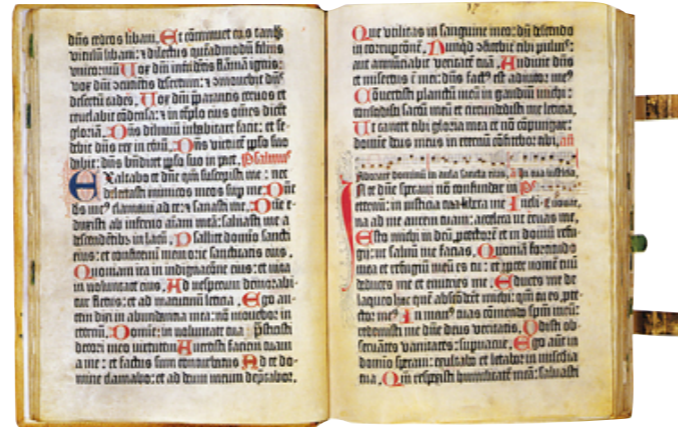 dñs cedros libani. Et comminuet eas tanq̃
vitulũ libani: ⁊ dilectus quẽadmodũ filius
unicorniũ Vox dñi intercidẽtis flãmã ignis:
vox dñi ⁊cucientis desertum: ⁊ ⁊mouebit dñs
desertũ cades. Vox dñi p̃parantis ceruos et
reuelabit cõdensa: ⁊ in tẽplo eius oms̃ dicẽt
gloriã. Dñs diluuiũ inhabitare facit: et se-
debit dñs rex in etnũ. Dñs virtutẽ pp̃lo suo
dabit: dñs bñdicet pp̃lo suo in pace. Psalmus
Exaltabo te dñe qm̃ suscepisti me: nec
delectasti inimicos meos sup me. Dñe
ds me⁹ clamaui ad te: ⁊ sanasti me. Dñe e-
duxisti ab inferno aĩam meã: saluasti me a
descendẽtibꝫ in lacũ. Psallite domino sancti
eius: et confitemini memorie sanctitatis eius.
Quoniam ira in indignacõne eius: et vita
in voluntate eius. Ad vesperum demorabi-
tur fletus: et ad matutinũ leticia. Ego au-
tem dixi in abundancia mea: nõ mouebor in
eternũ. Domine in voluntate tua p̃stitisti
decori meo virtutem Auertisti faciem tuam
a me: et factus sum conturbatus Ad te do-
mine clamabo: et ad deum meum dep̃cabor.
Que vtilitas in sanguine meo: dũ descendo
in corrupcõnẽ. Nunqd ⁊fitebit tibi puluis:
aut annũciabit veritatẽ tuã. Audiuit dñs
et misertus ẽ mei: dñs fact⁹ est adiutor me⁹
Cõuertisti planctũ meũ in gaudiũ michi:
conscidisti saccũ meũ et circumdedisti me leticia.
Ut cantet tibi gloria mea et nõ cõpungar:
domine deus meus in eternũ cõfitebor tibi. añ
Adorate dominũ in aula sancta eius. añ In tua iusticia.
In te dñe speraui nõ confundar in Pˢ
eternũ: in iusticia tua libera me Inclina
ad me aurem tuam: accelera ut eruas me.
Esto michi in deũ ptectorẽ et in domũ refu-
gij: ut saluũ me facias. Quoniã fortitudo
mea et refugiũ meũ es tu: et ppter nomẽ tuũ
deduces me et enutries me. Educes me de
laqueo hoc quẽ abscõderũt michi: qm̃ tu es ptec-
tor me⁹ In man⁹ tuas cõmendo spm̃ meũ:
redemisti me dñe deus veritatis. Odisti ob-
seruãtes vanitates: supuacue. Ego aũt in
domino speraui: exultabo et letabor in misẽdia
tua. Qm̃ respexisti humilitatẽ meã: saluasti